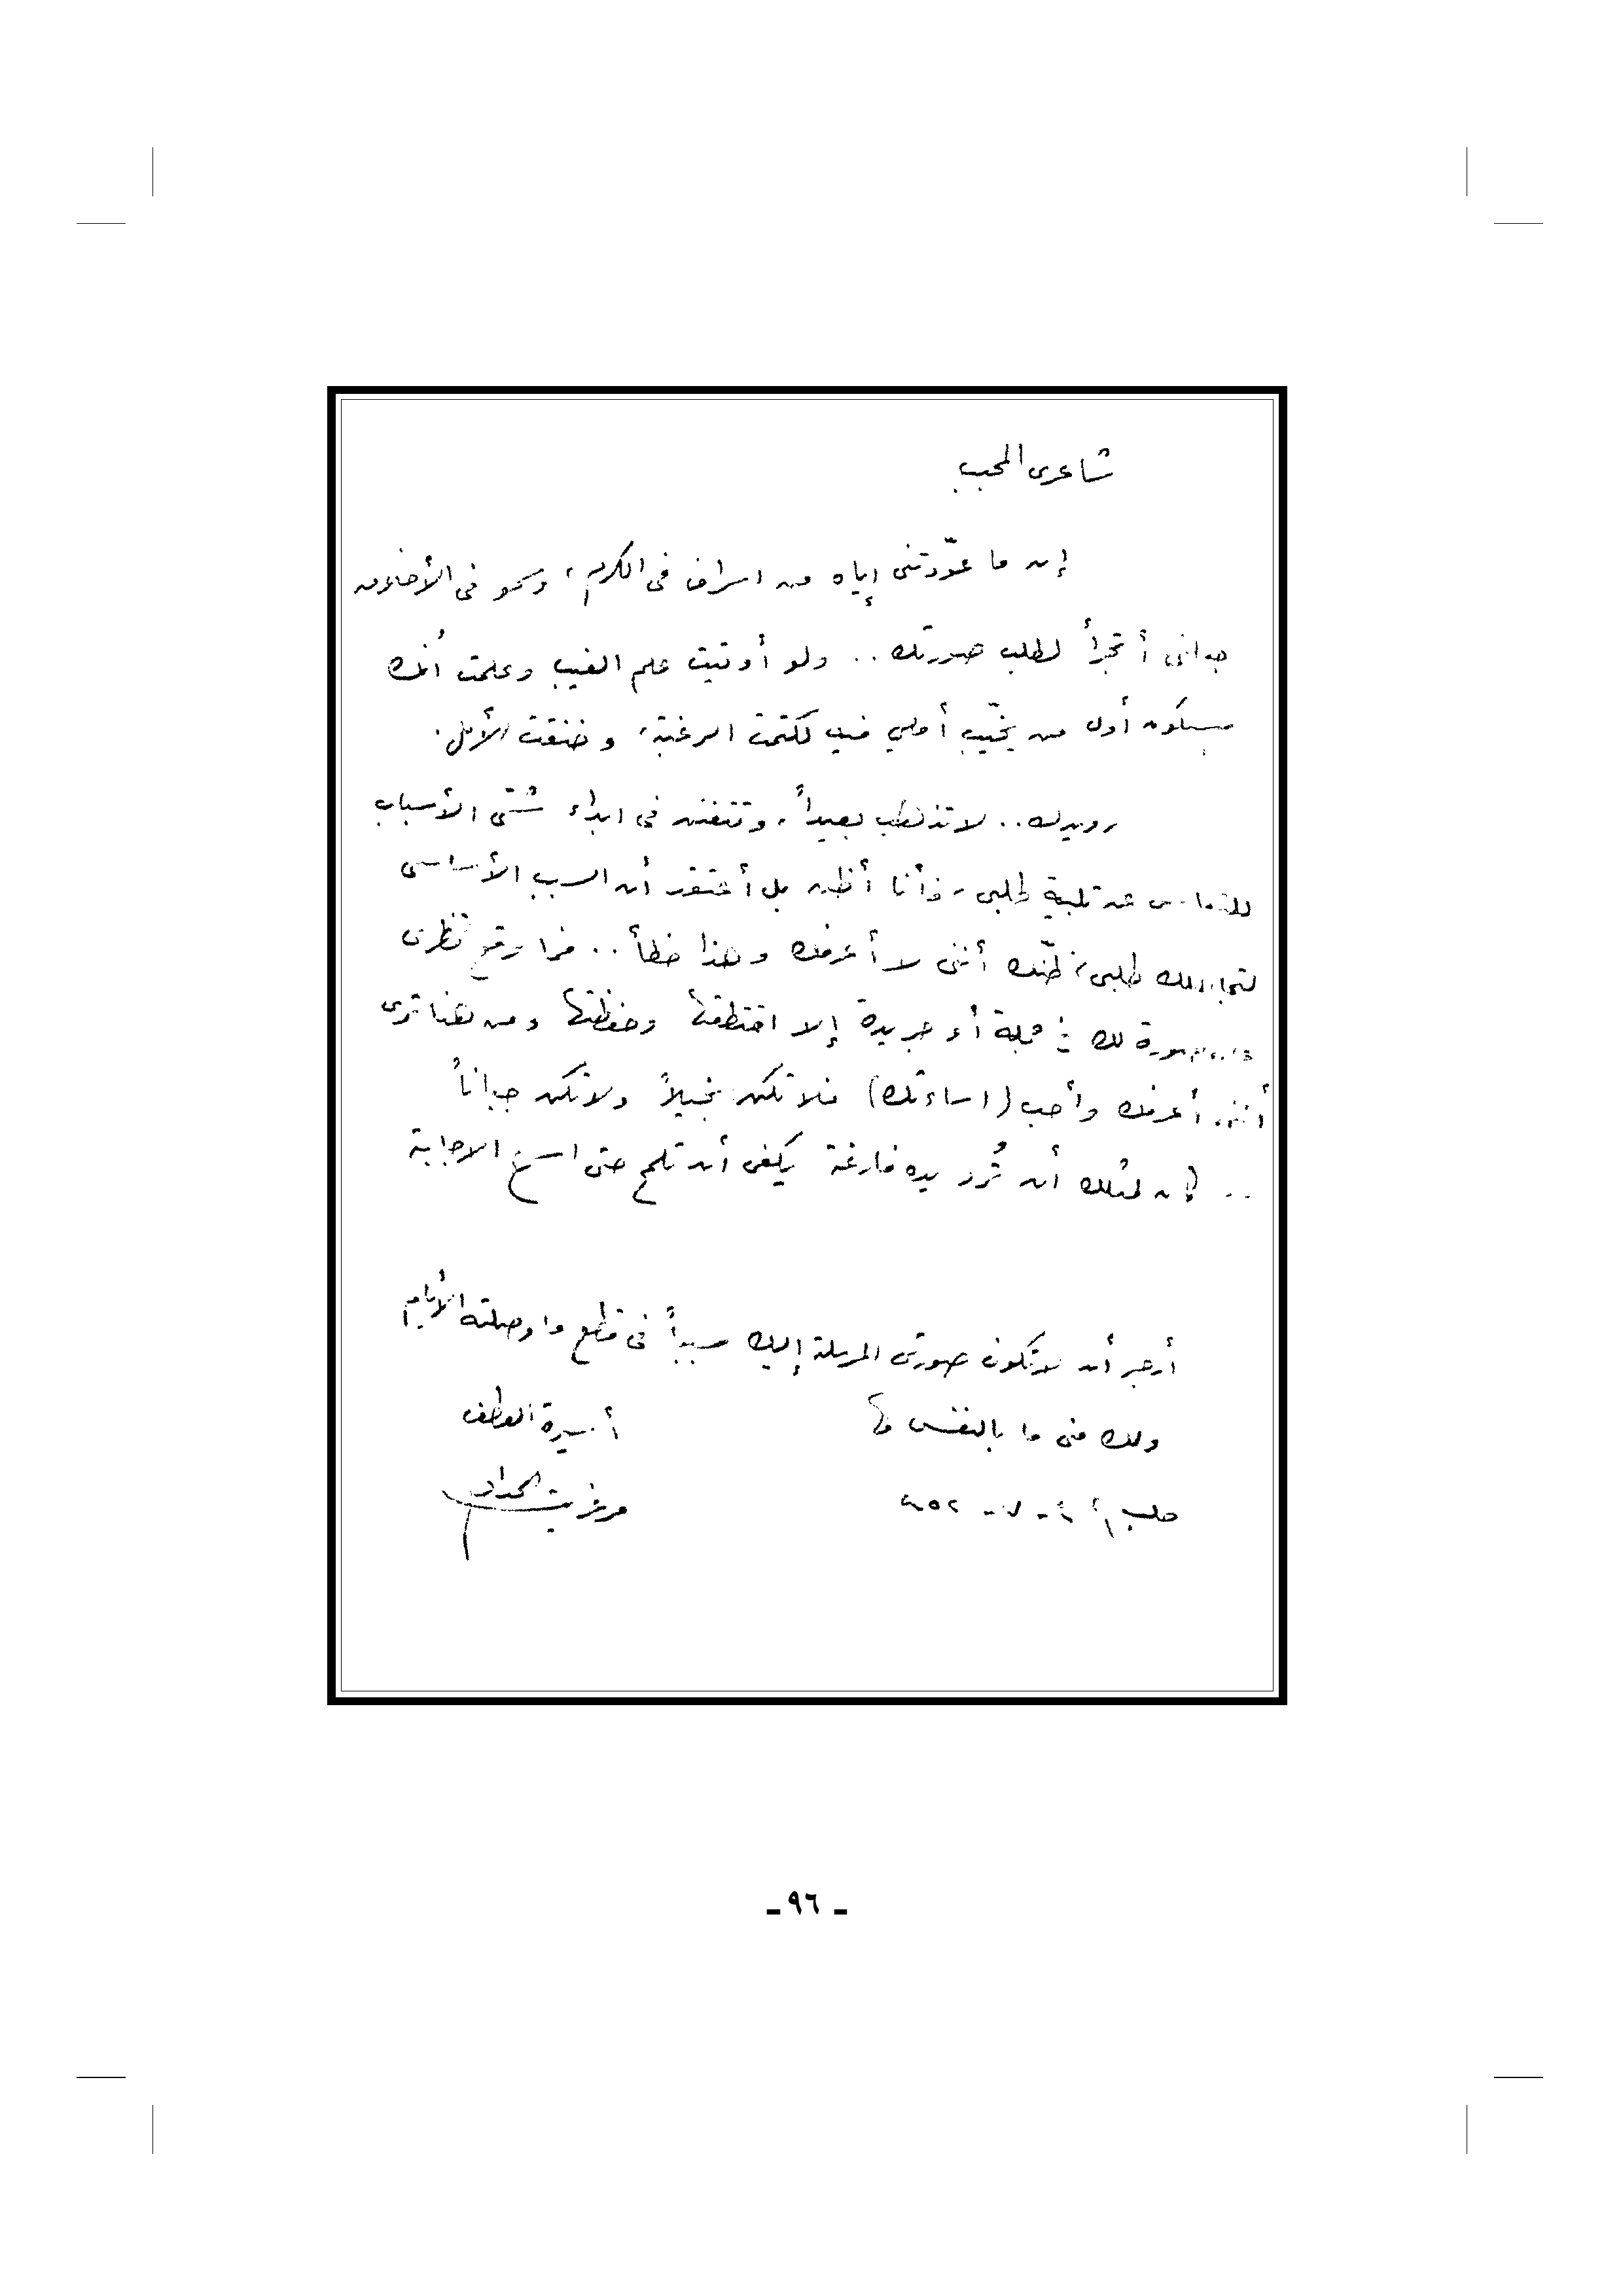 شاعرى المحبب
إن ما عوّدتنى إياه من اسراف فى الكرم، وسمو فى الأخلاق
جعلنى أتجرأ لطلب صورتك .. ولو أوتيت علم الغيب وعلمت أنك
ستكون أول من يخيّب أملي فيك لكتمت الرغبة، وخنقت الأمل.
رويدك .. لا تذهب بعيداً، وتتفنن فى ابداء شتى الأسباب
عن تلبية طلبى، فأنا أظن بل أعتقد أن السبب الأساسى
لتجاهلك طلبى، ظنّك أننى لا أعرفك وهذا خطأ .. فما وقع نظرى
صورة لك في مجلة أو جريدة إلا اقتطفتها وحفظتها ومن هنا ترى
أننى أعرفك وأحب (اساءتك) فلا تكن بخيلاً ولا تكن جباناً
.. لمثلك أن تُرد يده فارغة يكفى أن تلمح حتى اسرع الاجابة
أرجو أن لا تكون صورتى المرسلة إليك سبباً فى قطع ما وصلته الأيام
ولك منى ما بالنفس لها
أسيرة العطف
حلب
مرغريت الحداد
- ٩٦ -